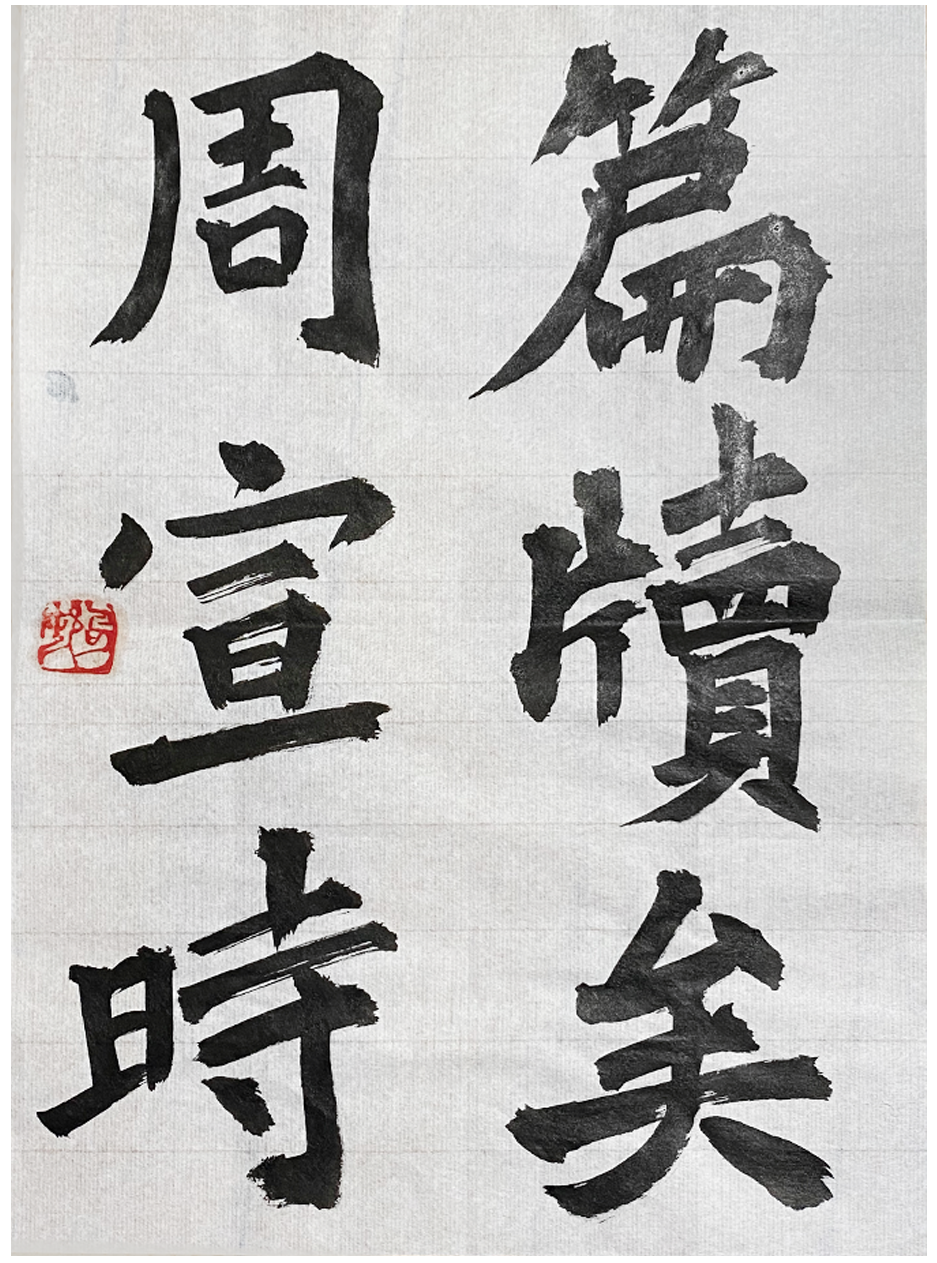 篇牘矣
周宣時